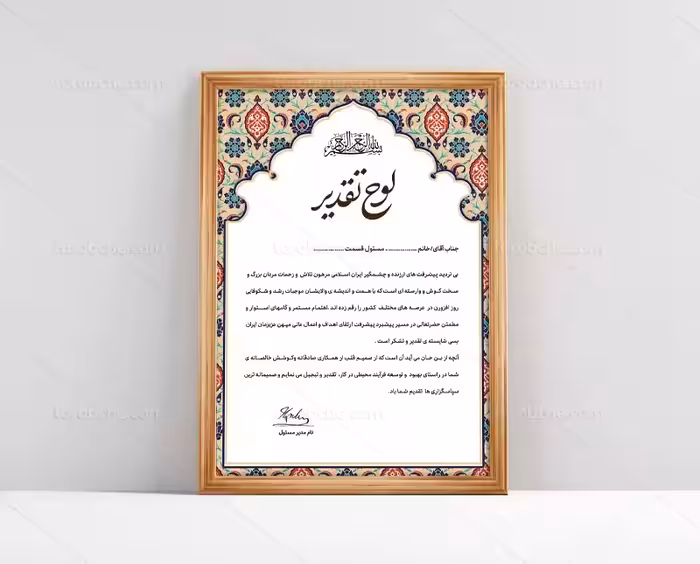 بسم الله الرحمن الرحیم
لوح تقدیر
جناب آقای/خانم .................. مسئول قسمت ..................
بی تردید پیشرفت های ارزنده و چشمگیر ایران اسلامی مرهون تلاش و زحمات مردان بزرگ و
سخت کوش و وارسته ای است که با همت و اندیشه ی والایشان موجبات رشد و شکوفایی
روز افزون در عرصه های مختلف کشور را رقم زده اند .اهتمام مستمر و گامهای استوار و
مطمئن حضرتعالی در مسیر پیشبرد پیشرفت ارتقای اهداف و اعمال عالی میهن عزیزمان ایران
بسی شایسته ی تقدیر و تشکر است .
آنچه از بن جان می آید آن است که از صمیم قلب از همکاری صادقانه وکوشش خالصانه ی
شما در راستای بهبود و توسعه فرآیند محیطی در کار، تقدیر و تبجیل می نمایم و صمیمانه ترین
سپاسگزاری ها تقدیم شما باد.
نام مدیر مسئول